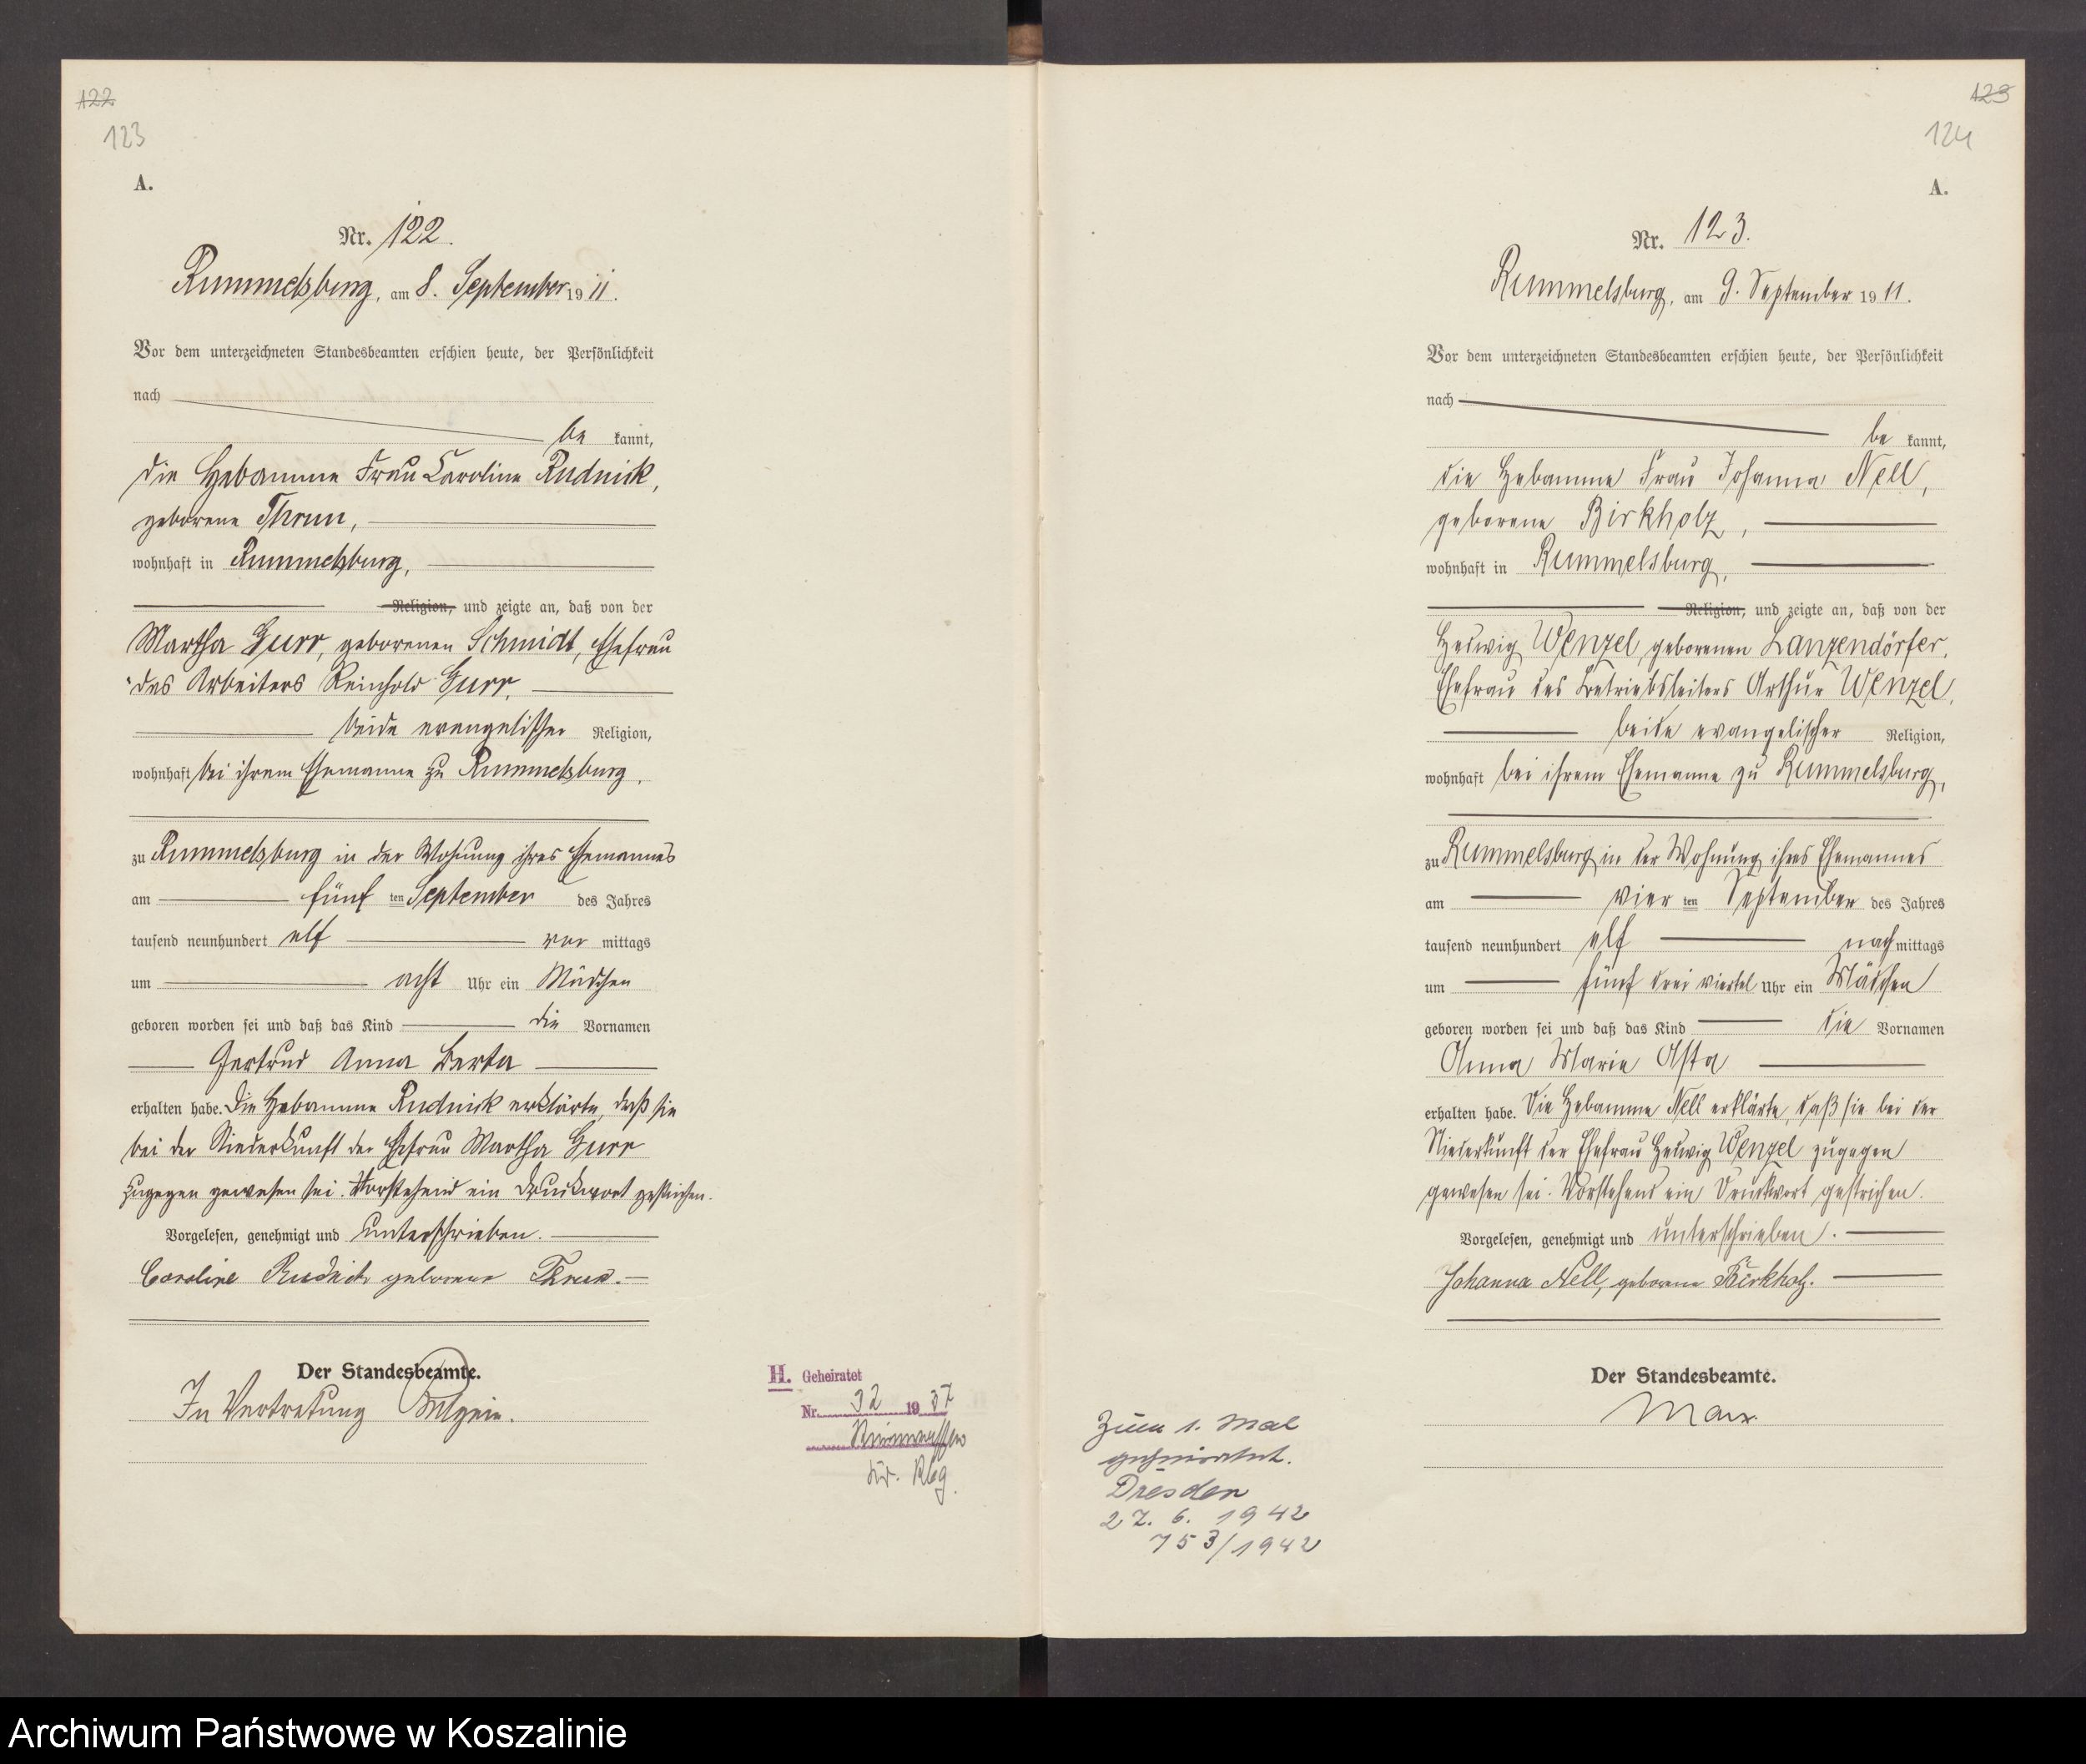 122
123
A.
Nr. 122.
Rummelsburg, am 8. September 1911.
Vor dem unterzeichneten Standesbeamten erschien heute, der Persönlichkeit
nach
be kannt,
die Hebamme Frau Caroline Rudnick,
geborene Thrun,
wohnhaft in Rummelsburg,
Religion, und zeigte an, daß von der
Martha Gurr, geborenen Schmidt, Ehefrau
des Arbeiters Reinhold Gurr,
beide evangelischer Religion,
wohnhaft bei ihrem Ehemanne zu Rummelsburg,
zu Rummelsburg in der Wohnung ihres Ehemannes
am fünf ten September des Jahres
tausend neunhundert elf vor mittags
um acht Uhr ein Mädchen
geboren worden sei und daß das Kind die Vornamen
Gertrud Anna Berta
erhalten habe. Die Hebamme Rudnick erklärte, daß sie
bei der Niederkunft der Ehefrau Martha Gurr
zugegen gewesen sei. Vorstehend ein Druckwort gestrichen.
Vorgelesen, genehmigt und unterschrieben.
Caroline Rudnick geborene Thrun.
Der Standesbeamte.
In Vertretung
H. Geheiratet
Nr. 32 1937
Kr. Rbg.
123
124
A.
Nr. 123.
Rummelsburg, am 9. September 1911.
Vor dem unterzeichneten Standesbeamten erschien heute, der Persönlichkeit
nach
be kannt,
die Hebamme Frau Johanna Nell,
geborene Birkholz,
wohnhaft in Rummelsburg,
Religion, und zeigte an, daß von der
Hedwig Wenzel, geborenen Lanzendörfer,
Ehefrau des Betriebsleiters Arthur Wenzel,
beide evangelischer Religion,
wohnhaft bei ihrem Ehemanne zu Rummelsburg,
zu Rummelsburg in der Wohnung ihres Ehemannes
am vier ten September des Jahres
tausend neunhundert elf nach mittags
um fünf drei viertel Uhr ein Mädchen
geboren worden sei und daß das Kind die Vornamen
Anna Marie Asta
erhalten habe. Die Hebamme Nell erklärte, daß sie bei der
Niederkunft der Ehefrau Hedwig Wenzel zugegen
gewesen sei. Vorstehend ein Druckwort gestrichen.
Vorgelesen, genehmigt und unterschrieben.
Johanna Nell, geborene Birkholz.
Der Standesbeamte.
Marx
Zum 1. Mal
geheiratet.
Dresden
27. 6. 1942
753/1942
Archiwum Państwowe w Koszalinie